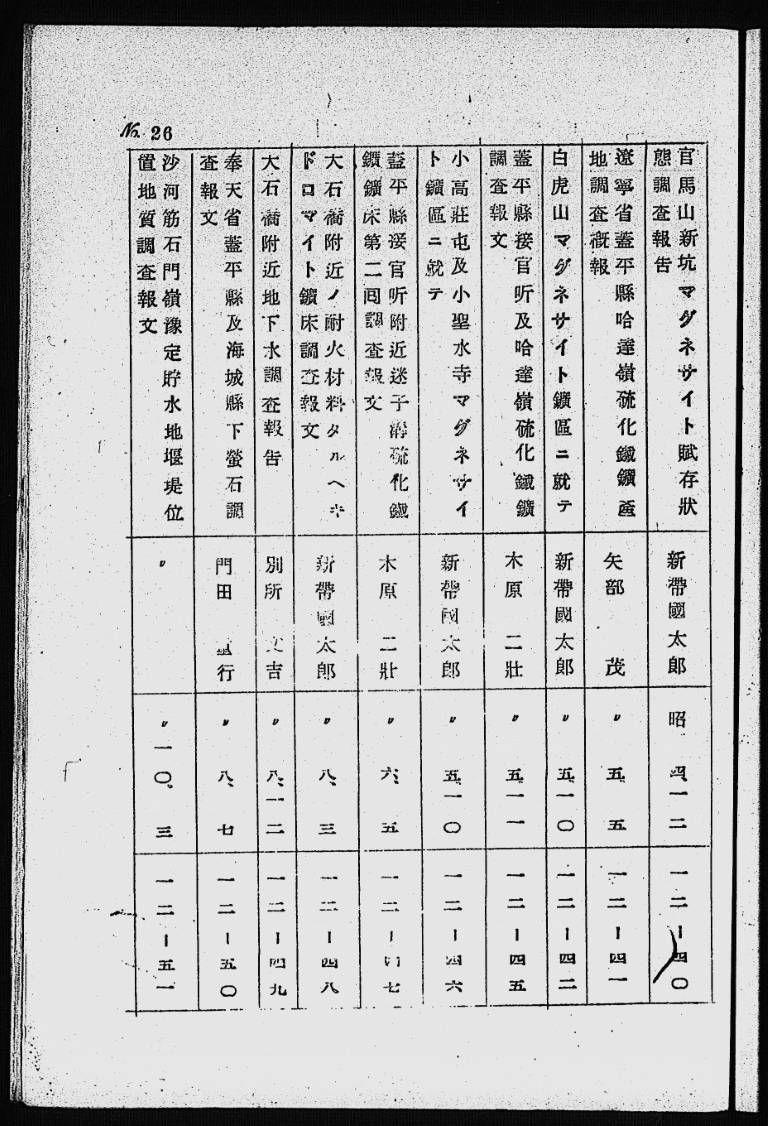 No. 26
官馬山新坑マグネサイト賦存狀
態調査報告
新帶國太郎
昭 四、一二
一二ー四〇
遼寧省蓋平縣哈達嶺硫化鐵鑛產
地調査概報
矢部 茂
〃 五、五
一二ー四一
白虎山マグネサイト鑛區ニ就テ
新帶國太郎
〃 五、一〇
一二ー四二
蓋平縣接官听及哈達嶺硫化鐵鑛
調査報文
木原 二壯
〃 五、一一
一二ー四五
小高莊屯及小聖水寺マグネサイ
ト鑛區ニ就テ
新帶國太郎
〃 五、一〇
一二ー四六
蓋平縣接官听附近迷子溝硫化鐵
鑛鑛床第二回調査報文
木原 二壯
〃 六、五
一二ー四七
大石橋附近ノ耐火材料タルヘキ
ドロマイト鑛床調査報文
新帶國太郎
〃 八、三
一二ー四八
大石橋附近地下水調査報告
別所 文吉
〃 八、一二
一二ー四九
奉天省蓋平縣及海城縣下螢石調
査報文
門田 重行
〃 八、七
一二ー五〇
沙河筋石門嶺豫定貯水地堰堤位
置地質調査報文
〃
〃 一〇、三
一二ー五一